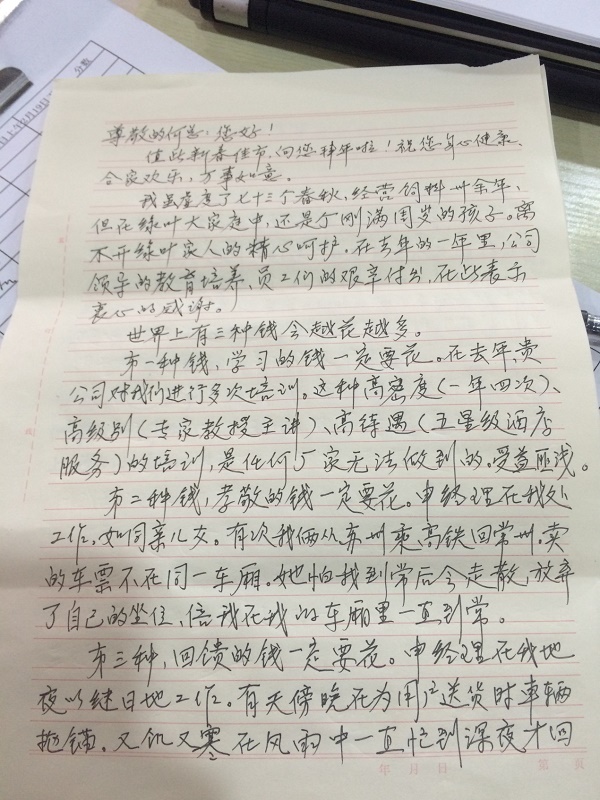 尊敬的何总：您好！
值此新春佳节，向您拜年啦！祝您身心健康、
合家欢乐，万事如意。
我虽虚度了七十三个春秋，经营饲料卅余年，
但在绿叶大家庭中，还是个刚满周岁的孩子。离
不开绿叶家人的精心呵护。在去年的一年里，公司
领导的教育培养、员工们的艰辛付出，在此表示
衷心的感谢。
世界上有三种钱会越花越多。
第一种钱，学习的钱一定要花。在去年，贵
公司对我们进行多次培训。这种高密度(一年四次)、
高级别(专家教授主讲)、高待遇(五星级酒店
服务)的培训，是任何厂家无法做到的。受益匪浅。
第二种钱，孝敬的钱一定要花。申经理在我处
工作，如同亲儿女。有次我俩从苏州乘高铁回常州，卖
的车票不在同一车厢。她怕我到常后会走散，放弃
了自己的坐位，倍我在我的车厢里一直到常。
第三种，回馈的钱一定要花。申经理在我地
夜以继日地工作。有天傍晚在为用户送货时车辆
抛锚。又饥又寒在风雨中一直忙到深夜才回
年 月 日 第 页
分数